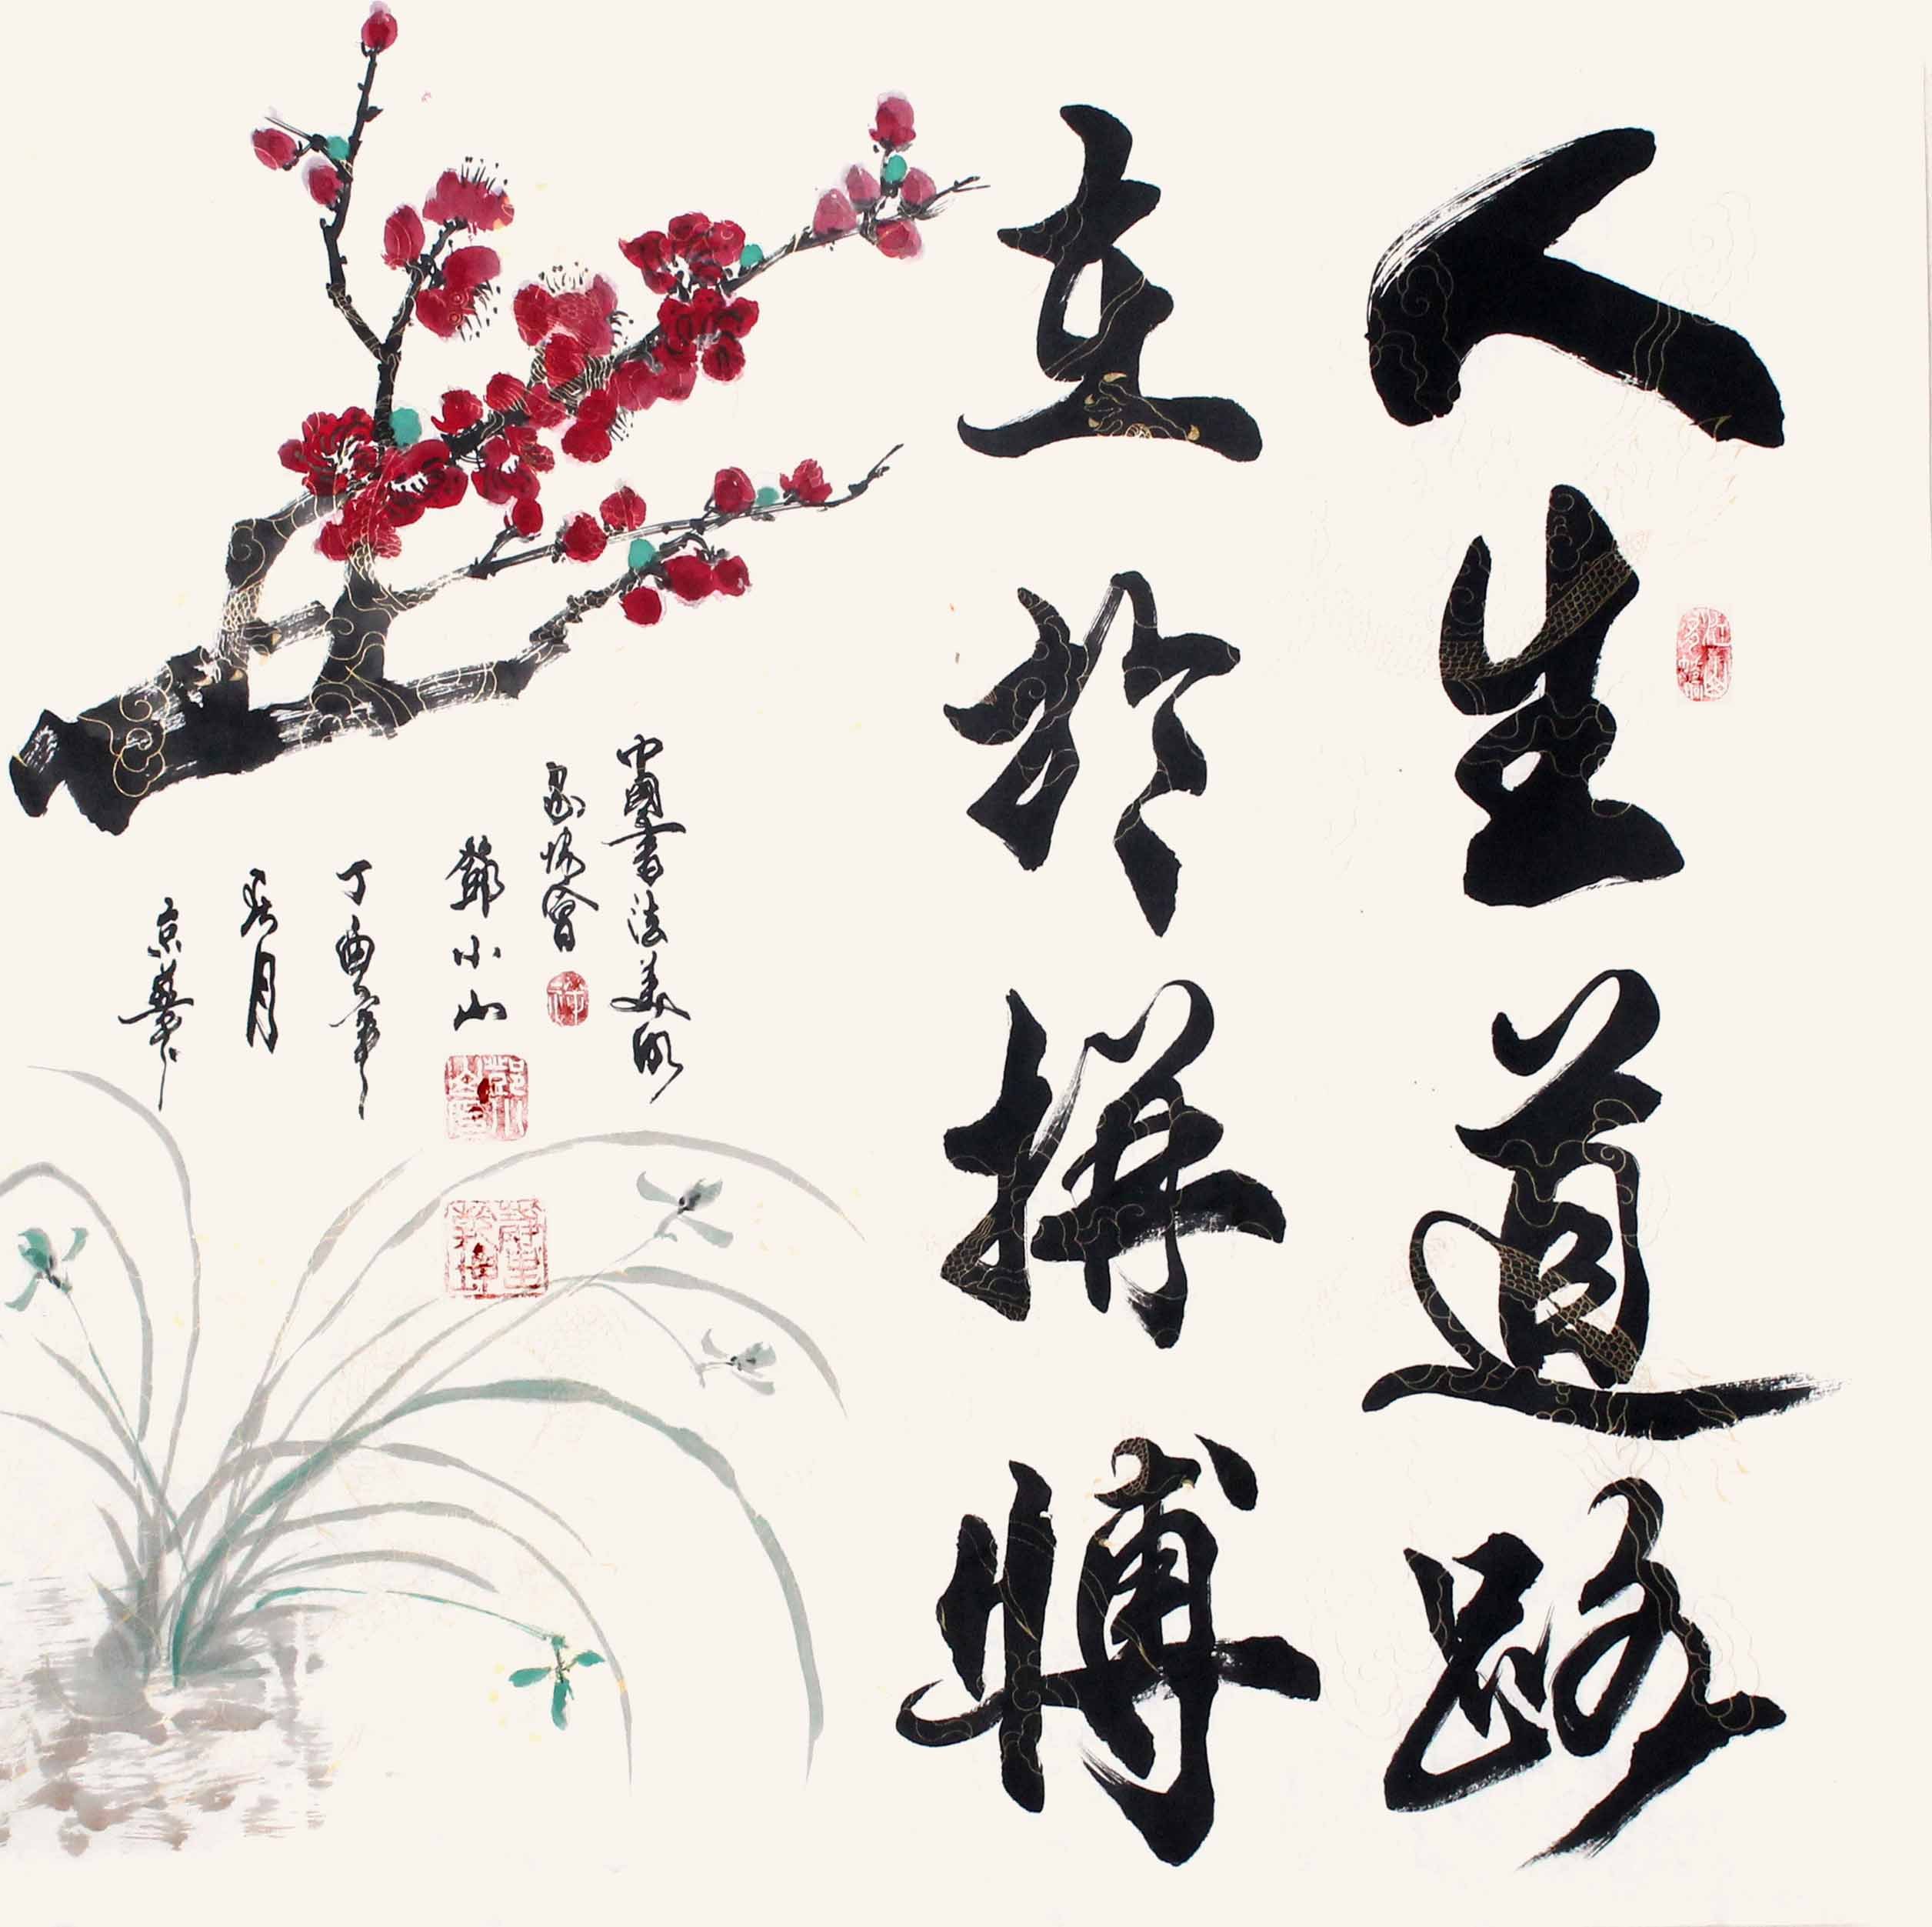 人生道路
在於拼搏
中國書法美術
家協會
鄧小山
丁酉年
月
京華